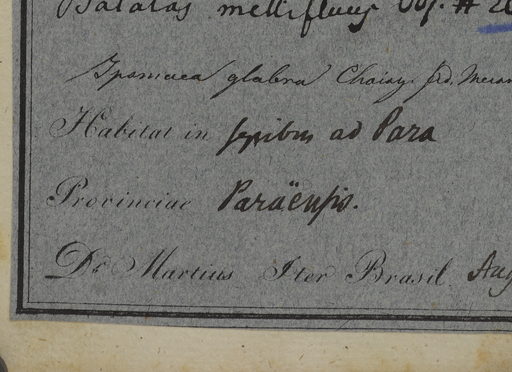 Batatas mellifluus Obs. #
Ipomaea glabra Choisy. fid. Meisn
Habitat in sepibus ad Para
Provinciae Paraënsis.
Dr Martius Iter Brasil. Aug